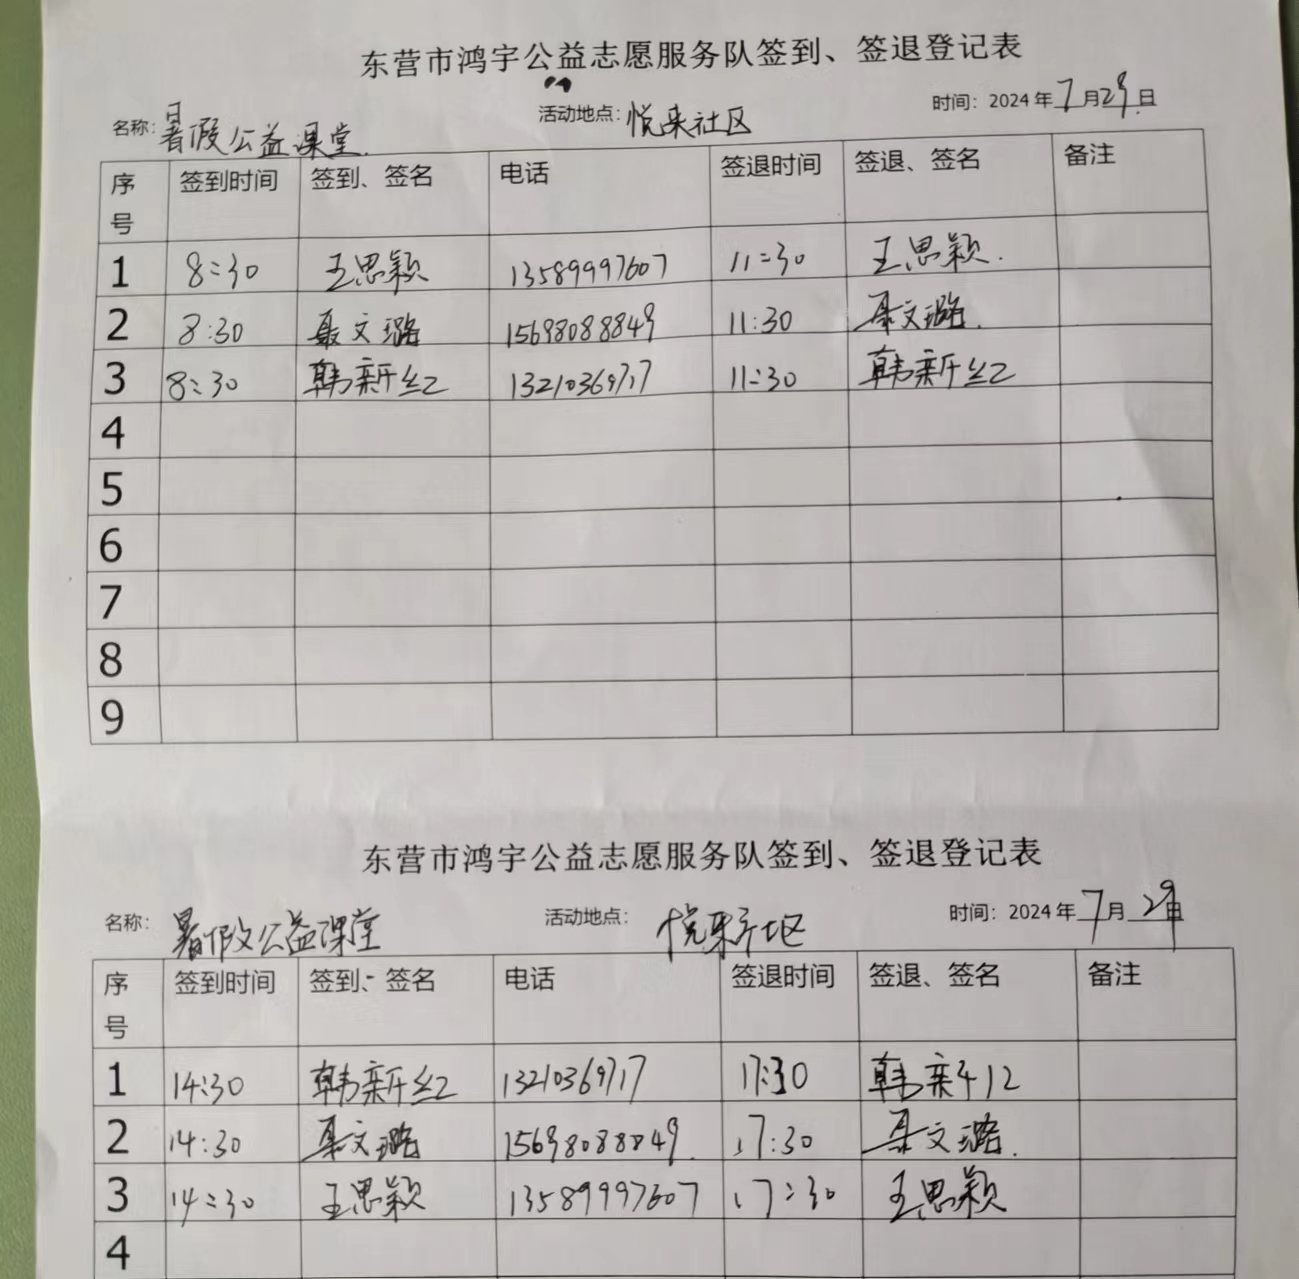 东营市鸿宇公益志愿服务队签到、签退登记表
名称：暑假公益课堂 活动地点：悦来社区 时间：2024年7月29日
序号 签到时间 签到、签名 电话 签退时间 签退、签名 备注
1 8:30 王思颖 13589997607 11:30 王思颖
2 8:30 聂文璐 15698088849 11:30 聂文璐
3 8:30 韩新红 13210369717 11:30 韩新红
4
5
6
7
8
9
东营市鸿宇公益志愿服务队签到、签退登记表
名称：暑假公益课堂 活动地点：悦来社区 时间：2024年7月29日
序号 签到时间 签到、签名 电话 签退时间 签退、签名 备注
1 14:30 韩新红 13210369717 17:30 韩新红
2 14:30 聂文璐 15698088849 17:30 聂文璐
3 14:30 王思颖 13589997607 17:30 王思颖
4